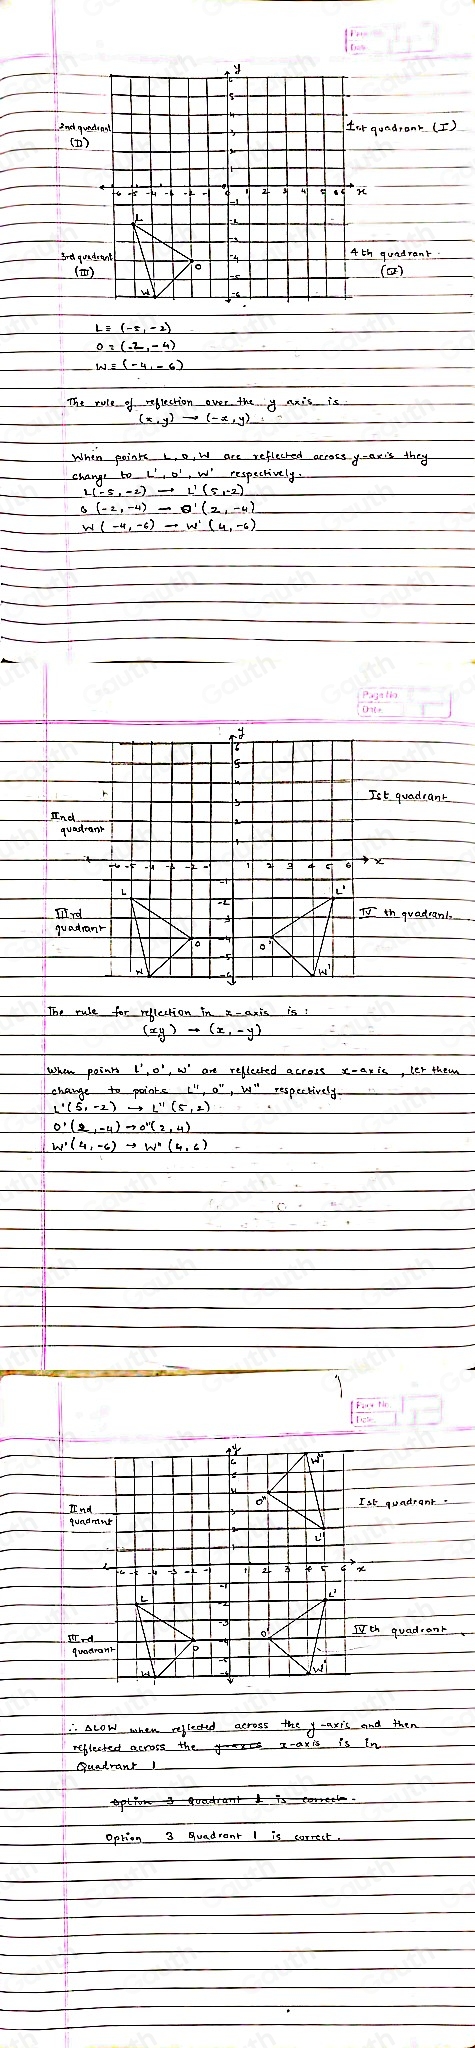 Page No.
Date
y
2nd quadrant
(II)
1st quadrant (I)
x
3rd quadrant
(III)
4th quadrant.
(IV)
L
O
W
L = (-5, -2)
O = (-2, -4)
W = (-4, -6)
The rule of reflection over the y axis is
(x, y) → (-x, y) :
When points L, O, W are reflected across y-axis they
change to L', O', W' respectively.
L(-5, -2) → L'(5, -2)
O (-2, -4) → O'(2, -4)
W (-4, -6) → W'(4, -6)
Page No
Date
y
Ist quadrant
IInd
quadrant
x
L
L'
IIIrd
quadrant
IV th quadrant.
O
O'
W
W'
The rule for reflection in x-axis is :
(xy) → (x, -y)
When points L', O', W' are reflected across x-axis, let them
change to points L'', O'', W'' respectively.
L'(5, -2) → L''(5, 2)
O'(2, -4) → O''(2, 4)
W'(4, -6) → W''(4, 6)
Page No.
Date
y
W''
O''
IInd
quadrant
Ist quadrant.
L''
x
L
L'
IIIrd
quadrant
O
O'
IV th quadrant
W
W'
∴ ΔLOW when reflected across the y-axis and then
reflected across the y-axis x-axis is in
Quadrant 1
Option 3 Quadrant 1 is correct.
Option 3 Quadrant 1 is correct.